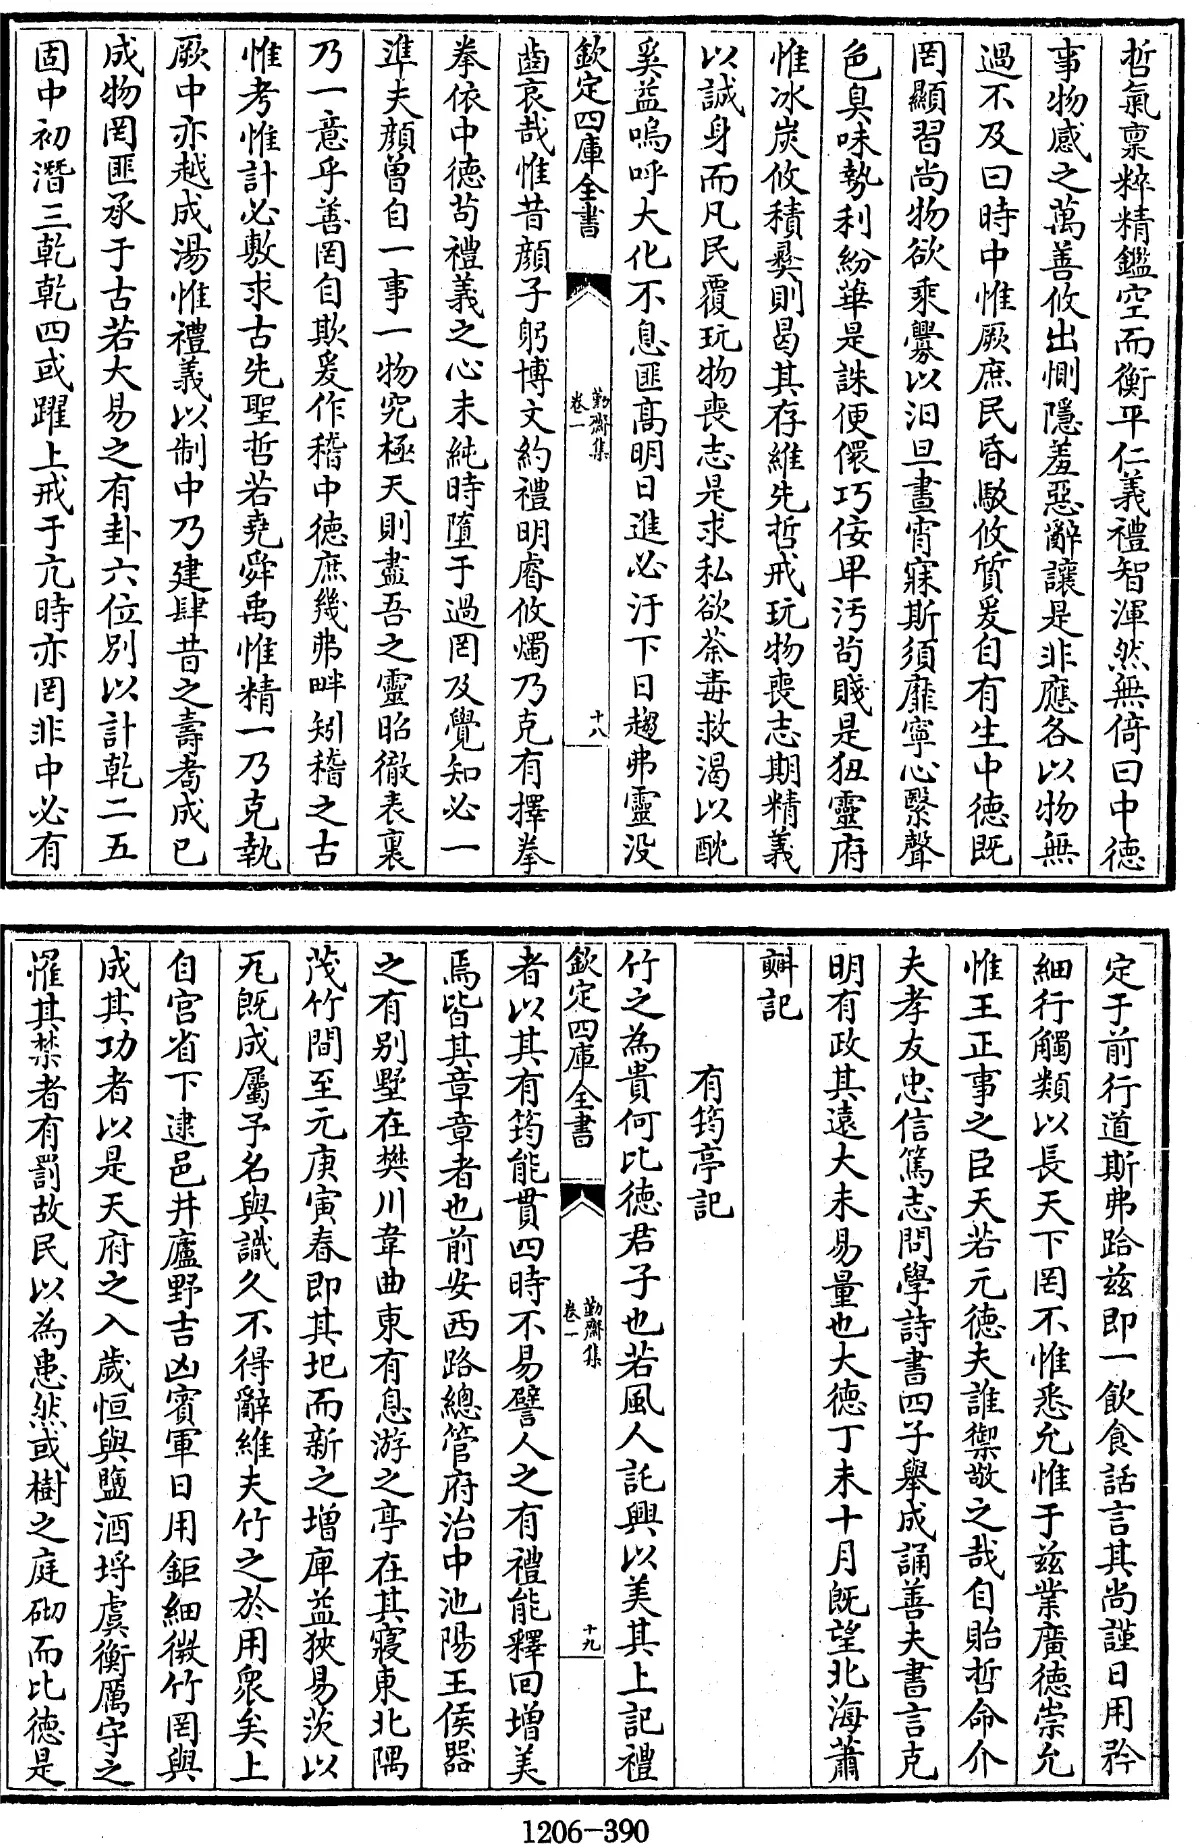 哲氣稟粹精鑑空而衡平仁義禮智渾然無倚曰中德
事物感之萬善攸出惻隱羞惡辭讓是非應各以物無
過不及曰時中惟厥庶民昏駁攸質爰自有生中德既
罔顯習尚物欲乘釁以汨旦晝宵寐斯須靡寧心繫聲
色臭味勢利紛華是誅便儇巧佞卑汚茍賤是狃靈府
惟冰炭攸積彝則曷其存維先哲戒玩物喪志期精義
以誠身而凡民覆玩物喪志是求私欲荼毒救渴以酖
奚益嗚呼大化不息匪高明日進必汙下日趨弗靈没
欽定四庫全書
勤齋集
卷一
十八
齒哀哉惟昔顔子躬博文約禮明睿攸燭乃克有擇拳
拳依中德茍禮義之心未純時墮于過罔及覺知必一
準夫顔曾自一事一物究極天則盡吾之靈昭徹表裏
乃一意乎善罔自欺爰作稽中德庶幾弗畔矧稽之古
惟考惟計必敷求古先聖哲若堯舜禹惟精一乃克執
厥中亦越成湯惟禮義以制中乃建肆昔之壽耇成已
成物罔匪承于古若大易之有卦六位别以計乾二五
固中初潛三乾乾四或躍上戒于亢時亦罔非中必有
定于前行道斯弗跲兹即一飲食話言其尚謹日用矜
細行觸類以長天下罔不惟悉允惟于兹業廣德崇允
惟王正事之臣天若元德夫誰禦敬之哉自貽哲命介
夫孝友忠信篤志問學詩書四子舉成誦善夫書言克
明有政其遠大未易量也大德丁未十月既望北海蕭
𣂏記
有筠亭記
竹之為貴何比德君子也若風人託興以美其上記禮
欽定四庫全書
勤齋集
卷一
十九
者以其有筠能貫四時不易譬人之有禮能釋回增美
焉皆其章章者也前安西路總管府治中池陽王侯器
之有别墅在樊川韋曲東有息游之亭在其寢東北隅
茂竹間至元庚寅春即其圯而新之增庳益狹易茨以
瓦既成屬予名與識久不得辭維夫竹之於用衆矣上
自宫省下逮邑井廬野吉凶賓軍日用鉅細微竹罔與
成其功者以是天府之入歲恒與鹽酒埒虞衡厲守之
罹其禁者有罰故民以為患然或樹之庭砌而比德是
1206-390